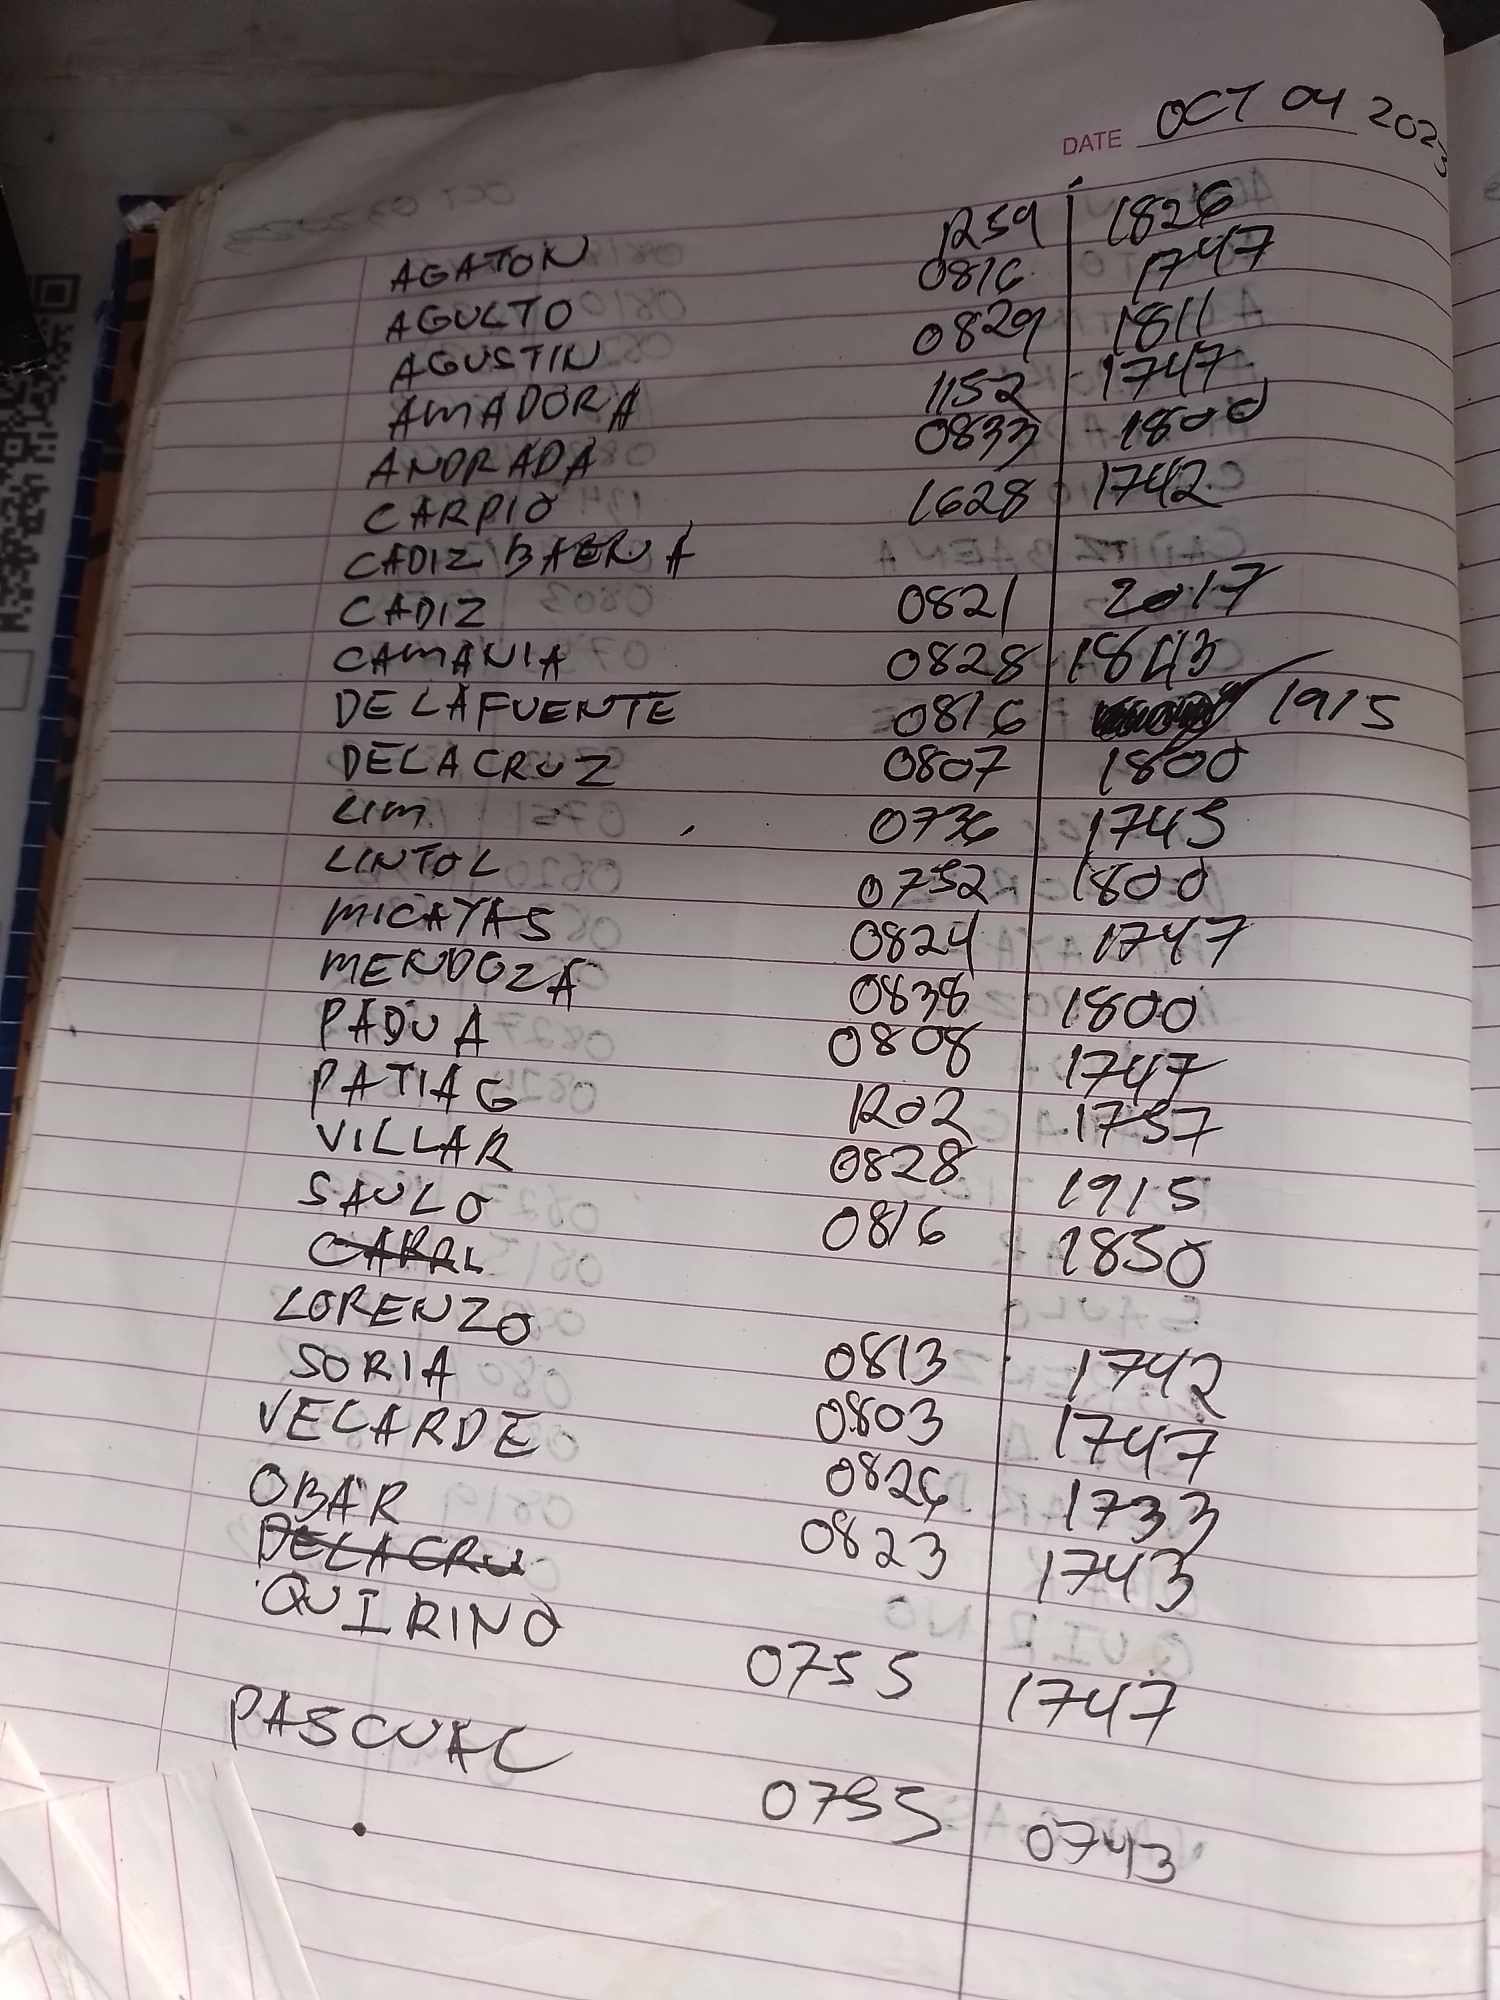 DATE OCT 04 2023
AGATON 1259 1826
AGULTO 0816 1747
AGUSTIN 0829 1811
AMADORA 1152 1747
ANDRADA 0833 1800
CARPIO 1628 1742
CADIZ BAENA
CADIZ 0821 2017
CAMANIA 0828 1843
DELAFUENTE 0816 1915
DELACRUZ 0807 1800
LIM 0736 1743
LINTOL 0752 1800
MICAYAS 0824 1747
MENDOZA 0838 1800
PADUA 0808 1747
PATIAG 1202 1757
VILLAR 0828 1915
SAULO 0816 1850
LORENZO
SORIA 0813 1742
VELARDE 0803 1747
OBAR 0826 1733
DELACRU 0823 1743
QUIRINO 0755 1747
PASCUAL 0755 0743